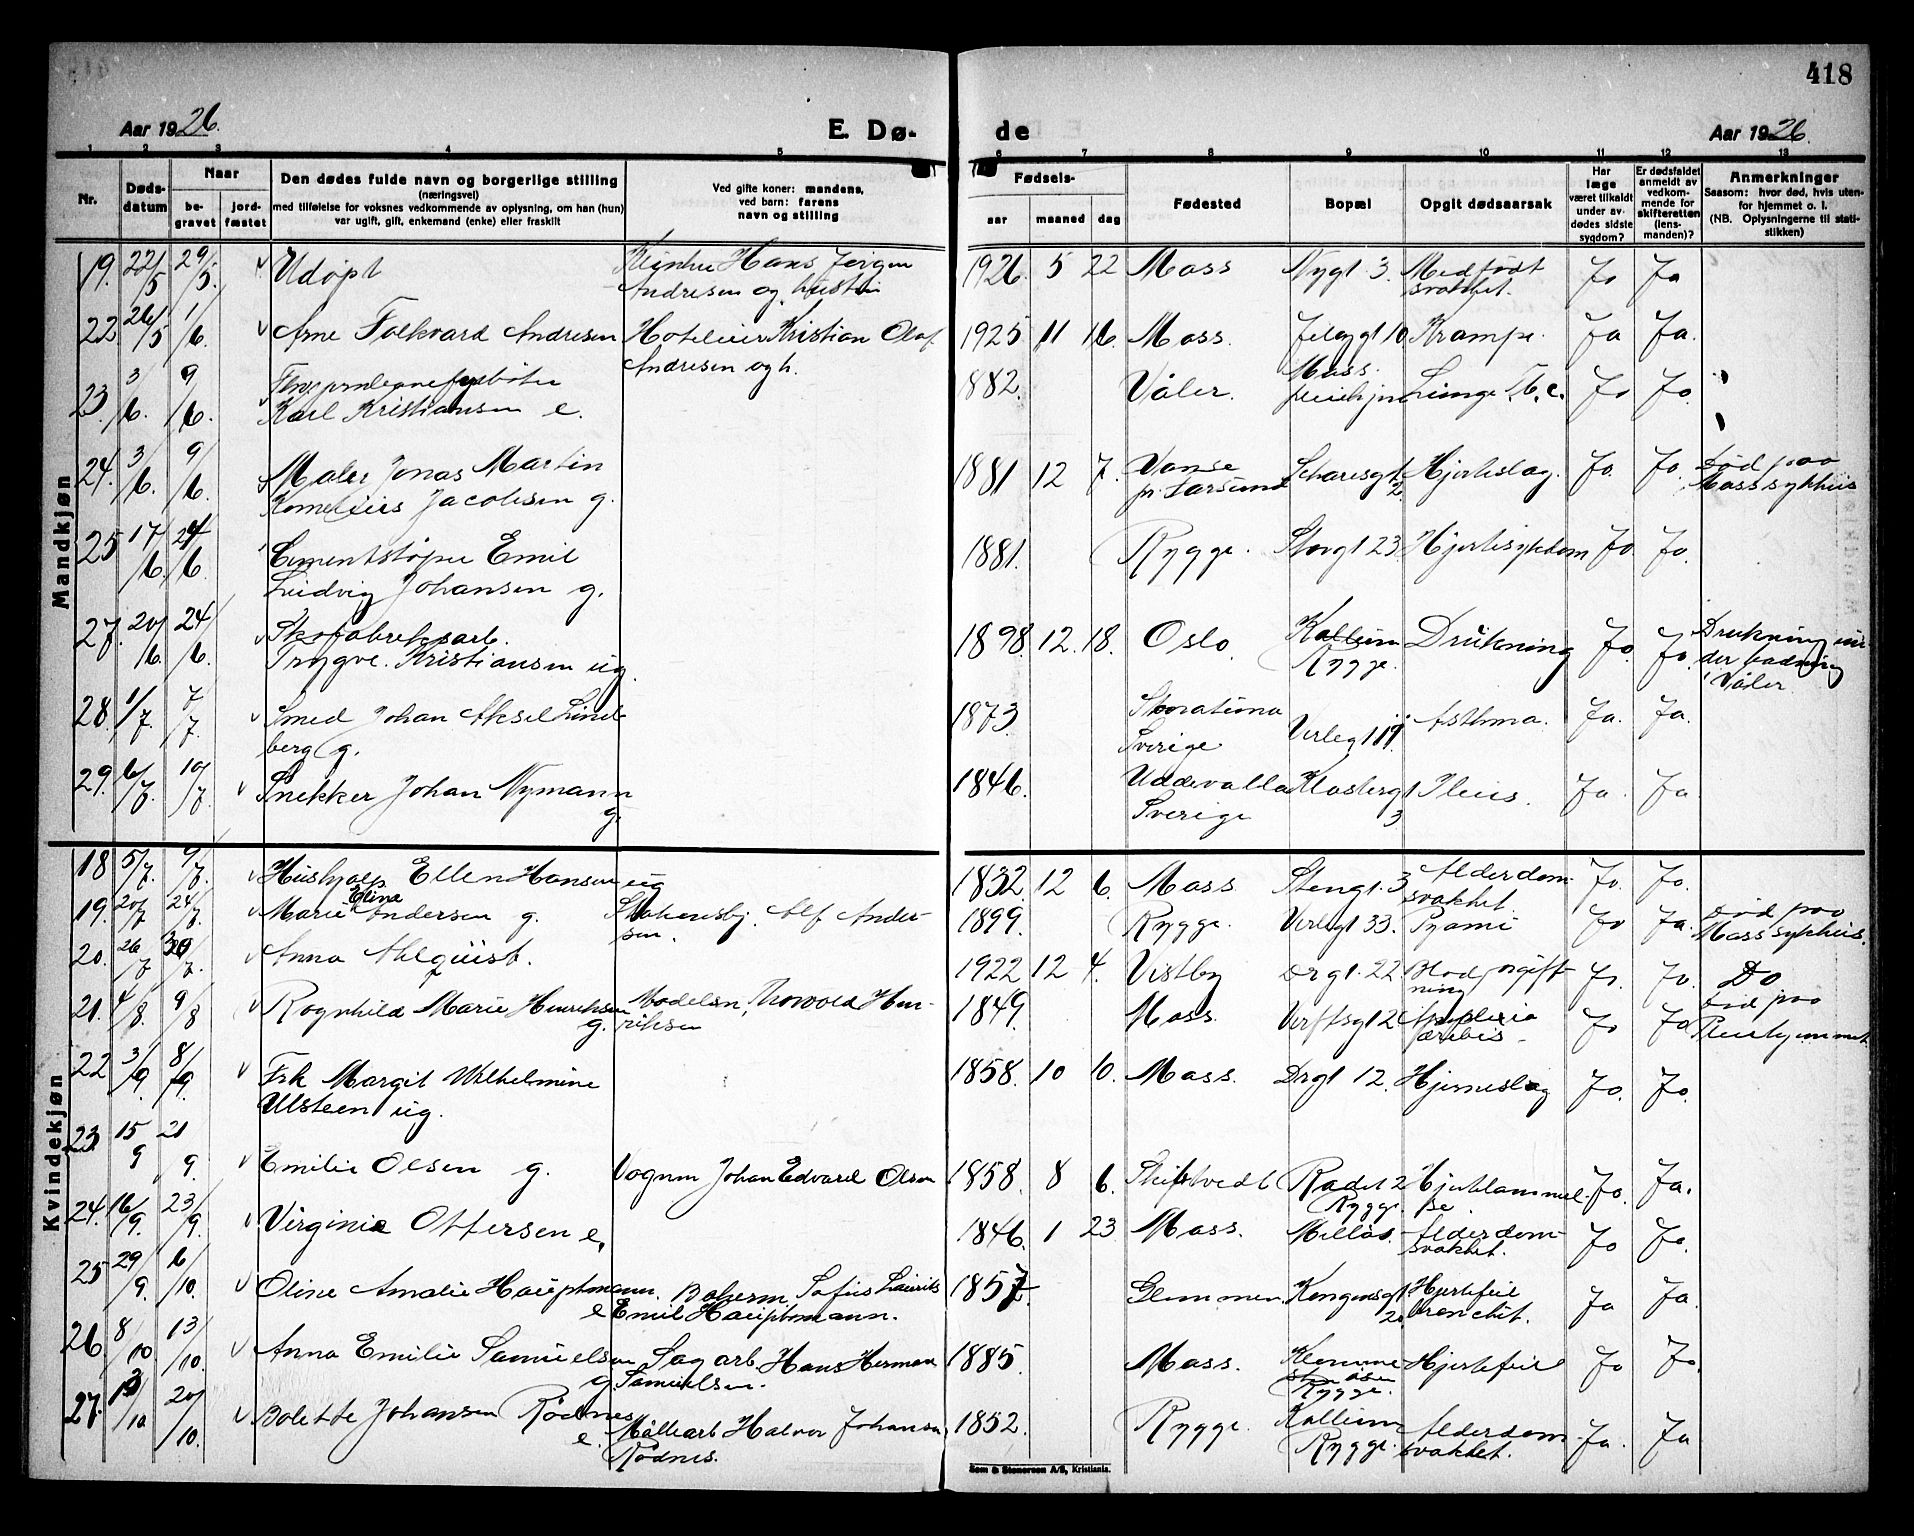 418
Aar 1926.
E. Dø-
de
Aar 1926.
1 2 3 4 5 6 7 8 9 10 11 12 13
Nr.
Døds-
datum
Naar
be-
gravet
jord-
fæstet
Den dødes fulde navn og borgerlige stilling
(næringsvei)
med tilføielse for voksnes vedkommende av oplysning, om han (hun)
var ugift, gift, enkemand (enke) eller fraskilt
Ved gifte koner: mandens,
ved barn: farens
navn og stilling
Fødsels-
aar maaned dag
Fødested
Bopæl
Opgit dødsaarsak
Har
læge
været tilkaldt
under av-
dødes sidste
sygdom?
Er dødsfaldet
anmeldt av
vedkom-
mende for
skifteretten
(lens-
manden)?
Anmerkninger
Saasom: hvor død, hvis uten-
for hjemmet o. l.
(NB. Oplysningerne til stati-
stikken)
Mandkjøn
19. 22/5 29/5. Udøpt Hans Jørgen 1926. 5 22 Moss Nygt. 3. Medfødt Ja Ja
Andresen og hustru svakhet.
22 26/5 1/6. Arne Folkvard Andresen Hoteleier Kristian Olaf 1925 11 16 Moss. Jeløygt 10 Krampe. Ja Ja.
Andresen og h.
23. 3/6. 9/6. 1882. Våler. Moss. Lunge Tb.c. Ja Ja
Karl Kristiansen e.
24. 3/6. 9/6. Maler Jonas Martin 1881 12 7. Vanse Hjerteslag. Ja. Ja. Død paa
Kornelius Jacobsen g. pr. Farsund 2. Moss sykhus
25 17/6. 24/6. Cementstøper Emil 1881. Rygge. Storgt 23. Hjertesykdom Ja Ja.
Ludvig Johansen g.
27. 20/6. 24/6. Skofabrikarb. 1898. 12. 18. Oslo. Kallum Drukning Ja. Ja. Drukning un
Trygve Kristiansen ug. Rygge. der badning
i Våler
28. 1/7. 7/7. Smed Johan Aksel Lind 1873 Verlegt 119. Asthma. Ja. Ja.
berg g. Sverige
29. 6/7. 10/7. Snekker Johan Nymann 1846. Uddevalla Klostergt Ileus. Ja. Ja
g. Sverige 3
Kvindekjøn
18 5/7. 9/7. Hushjelp Ellen Hansen ug 1832. 12 6. Moss Stengt. 3 Alderdom- Ja. Ja.
svakhet.
19. 20/7 24/7. Marie Elina Andersen g. Alf Ander- 1899. Rygge. Verlegt 33. Pyæmi Ja Ja. Død paa
sen. Moss sykhus.
20. 26/7 30/7. Anna Ahlquist. 1922 12 4. Vistby Drgt. 22. Blodforgift- Ja. Ja. Do
ning
21. 4/8. 9/8 Ragnhild Marie Henriksen Hen- 1849. Moss. Verftsgt 2 Apoplexia Ja Ja Død paa
g. riksen cerebis - Pleiehjemmet
22 3/9. 8/9. Frk Margit Wilhelmine 1858. 10 10. Moss. Drgt 12. Hjerneslag Ja. Ja.
Ulsteen ug.
23 15/9 21/9. Emilie Olsen g. Vognm Johan Edvard Olsen 1858. 8 6. Skiptvedt Rådet 2 Hjertelammel- Ja. Ja.
Rygge. se
24. 16/9. 23/9. Virginia Ottersen e. 1846. 1 23 Moss. Melløs. Alderdom- Ja Ja.
svakhet.
25 29/9. 6/10. Oline Amalie Hauptmann. Bokerm. Sofus Laurits 1857. Glemmen. Kongensgt Hjertefeil Ja Ja.
e Emil Hauptmann. 20 bronchit.
26. 8/10 13/10. Anna Emilie Samuelsen Sagarb. Hans Herman 1885. Moss. Hjertefeil Ja Ja.
g. Samuelsen. Rygge.
27. 13/10 20/10. Bolette Johansen Rødnes Møllearb Halvor Johansen 1852. Rygge. Kallum Alderdom- Ja. Ja
e. Rødnes. Rygge. svakhet.
Sem & Stenersen A/S, Kristiania.